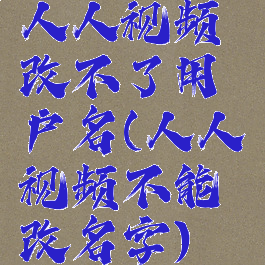 人人视频
改不了用
户名(人人
视频不能
改名字)